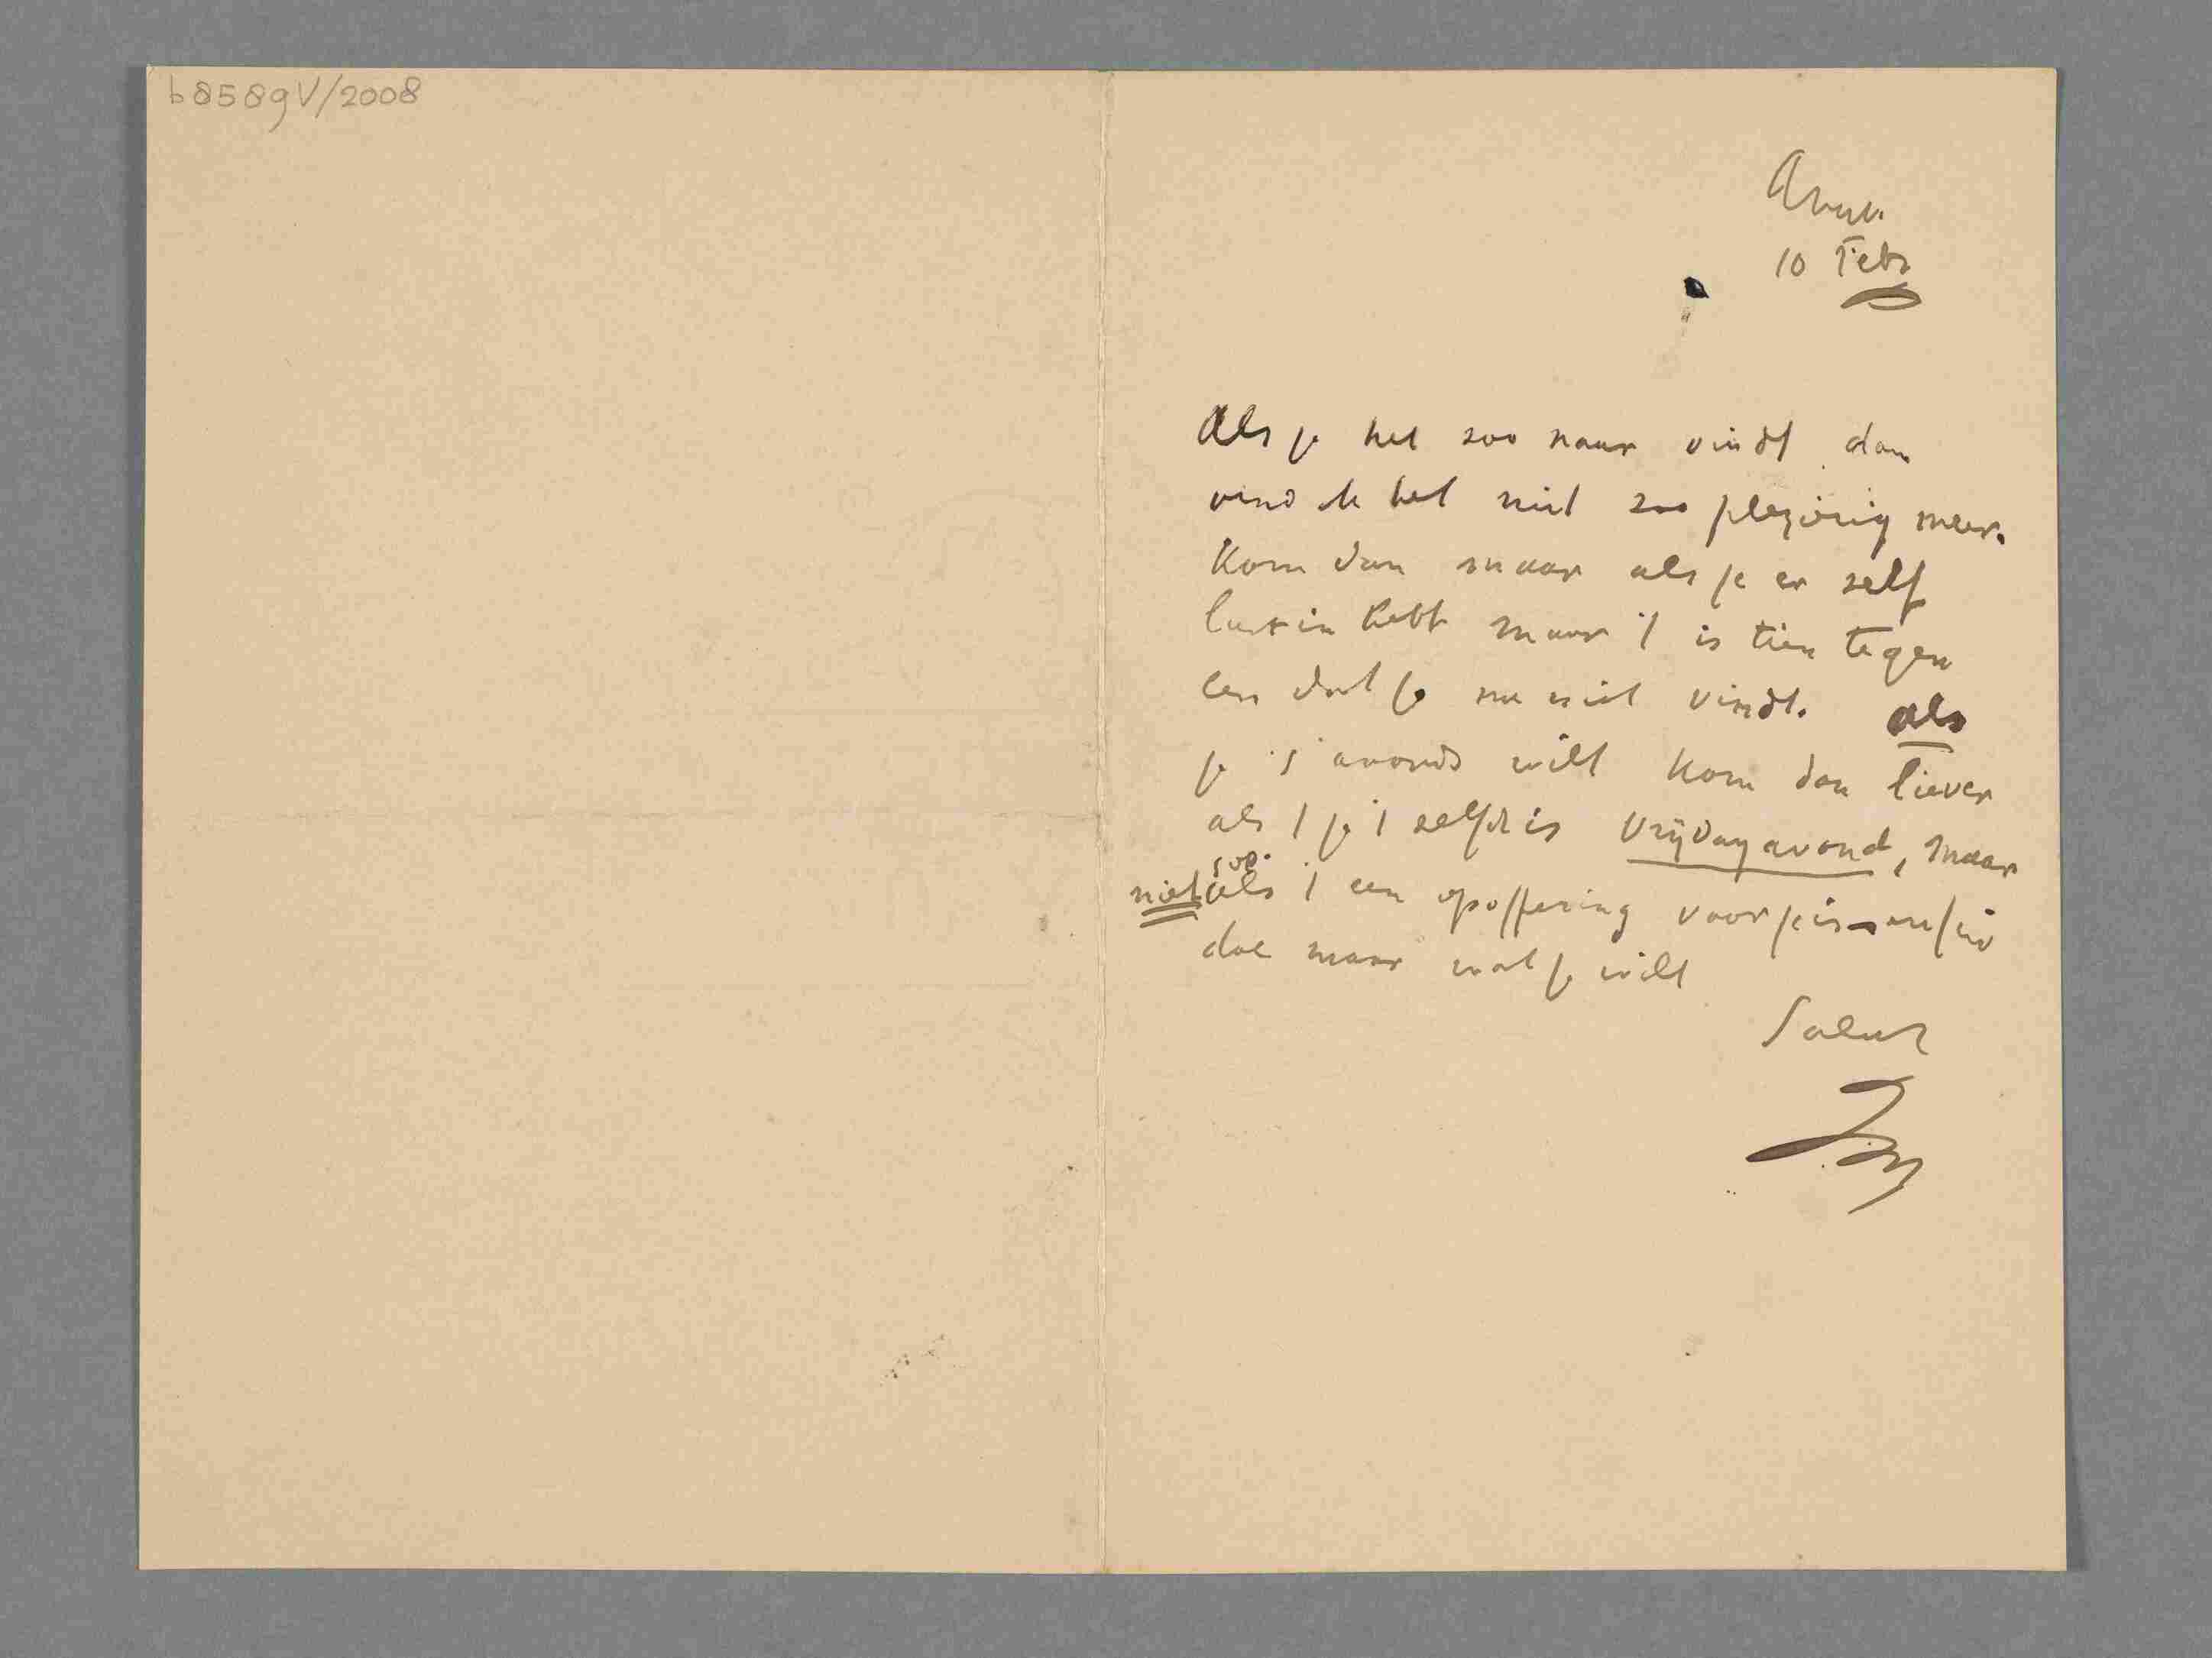 b8589V/2008
10 Febr
Als je het zoo naar vindt dan
vind ik het niet zoo plezierig meer.
Kom dan maar als je er zelf
lust in hebt maar 't is tien tegen
een dat je me niet vindt. als
je 's avonds wilt kom dan liever
als 't je 't zelfde is vrijdag avond, maar
soo.
niet als 't een opoffering voor je is
doe maar wat je wilt
Salut